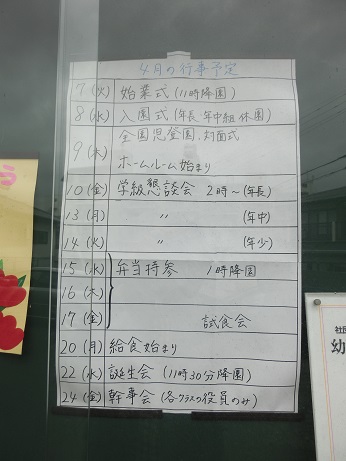 4月の行事予定
7 (火) 始業式 (11時降園)
8 (水) 入園式 (年長・年中組 休園)
9 (木) 全園児登園・対面式
ホームルーム始まり
10 (金) 学級懇談会 2時〜 (年長)
13 (月) 〃 (年中)
14 (火) 〃 (年少)
15 (水) 弁当持参 1時降園
16 (木)
17 (金) 試食会
20 (月) 給食始まり
22 (水) 誕生会 (11時30分降園)
24 (金) 幹事会 (各クラスの役員のみ)
ら
社団
幼